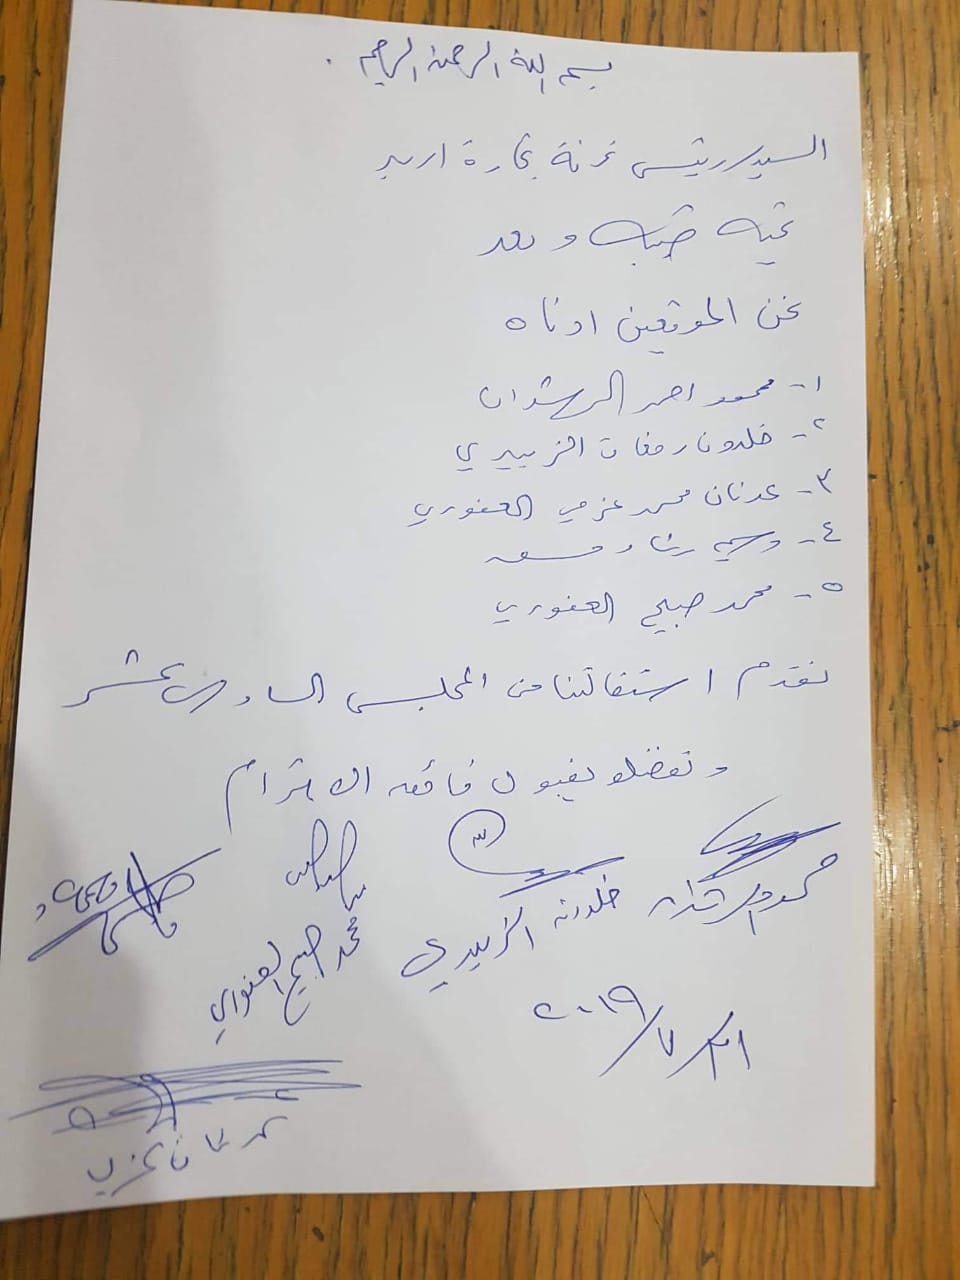 بسم الله الرحمن الرحيم .
السيد رئيس غرفة تجارة اربد
تحية طيبة و بعد
نحن الموقعين ادناه
١- محمود احمد الرشدان
٢- خلدون رفعات الزبيدي
٣- عدنان محمد عزمي العفوري
٤-
٥- محمد صبيح العفوري
نقدم استقالتنا من المجلس السادس عشر
و تفضلو بقبول فائقه الاحترام
خلدون الزبيدي
محمد صبيح العفوري
٢٠١٩/٧/